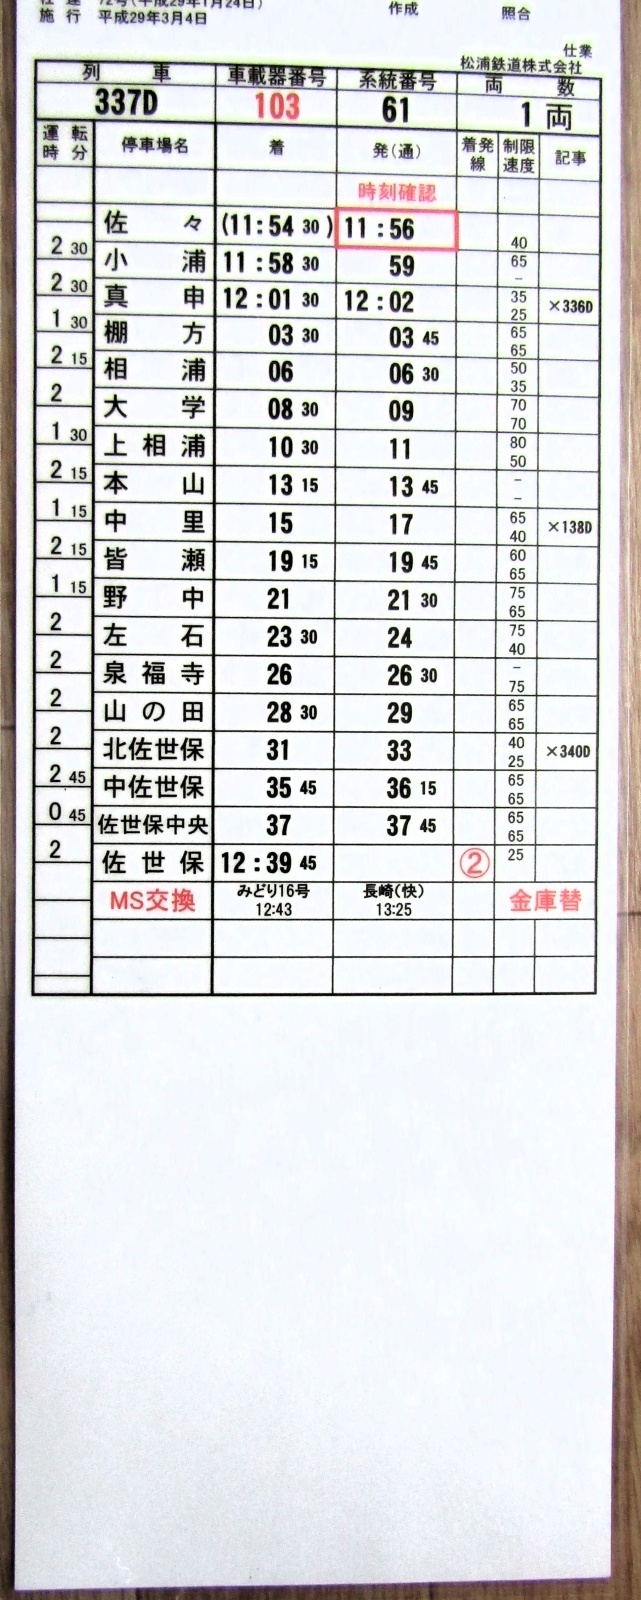 社達 72号(平成29年1月24日)
施行 平成29年3月4日 作成 照合
仕業
松浦鉄道株式会社
列車 車載器番号 系統番号 両数
337D 103 61 1両
運転時分 停車場名 着 発(通) 着発線 制限速度 記事
時刻確認
佐々 (11:54 30) 11:56
2 30 40
小浦 11:58 30 59 65
2 30 -
真申 12:01 30 12:02 35 ×336D
1 30 25
棚方 03 30 03 45 65
2 15 65
相浦 06 06 30 50
2 35
大学 08 30 09 70
1 30 70
上相浦 10 30 11 80
2 15 50
本山 13 15 13 45 -
1 15 -
中里 15 17 65 ×138D
2 15 40
皆瀬 19 15 19 45 60
1 15 65
野中 21 21 30 75
2 65
左石 23 30 24 75
2 40
泉福寺 26 26 30 -
2 75
山の田 28 30 29 65
2 65
北佐世保 31 33 40 ×340D
2 45 25
中佐世保 35 45 36 15 65
0 45 65
佐世保中央 37 37 45 65
2 65
佐世保 12:39 45 ② 25
MS交換 みどり16号 長崎(快) 金庫替
12:43 13:25